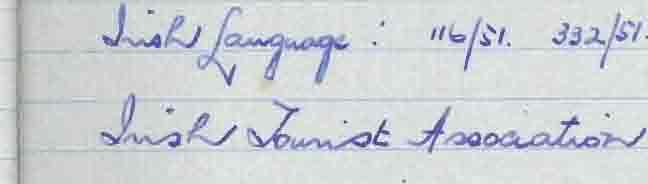 Irish Language : 116/51. 332/51.
Irish Tourist Association